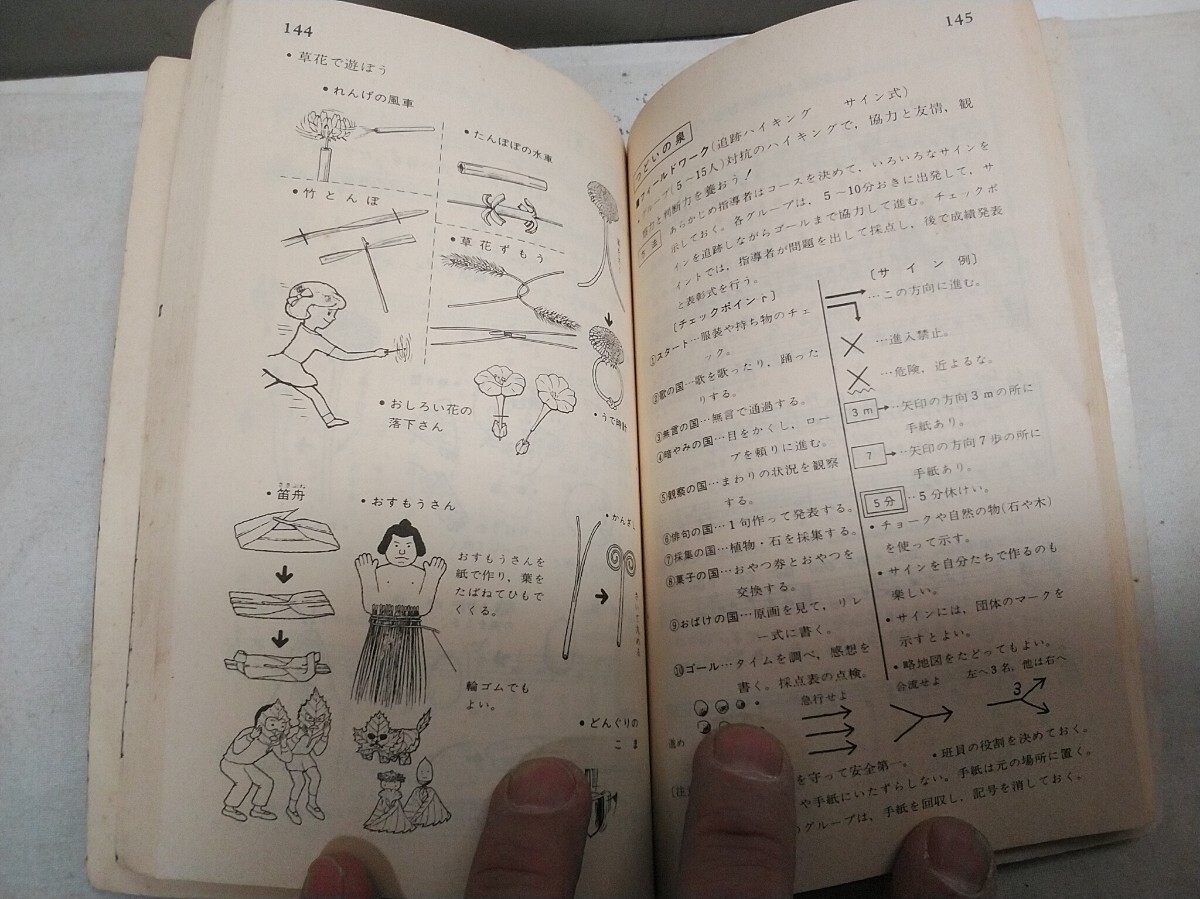 144
・草花で遊ぼう
・れんげの風車
・たんぽぽの水車
・竹とんぼ
・草花ずもう
・うで時計
・おしろい花の
落下さん
ささぶね
・笛舟
・おすもうさん
おすもうさんを
紙で作り，葉を
たばねてひもで
くくる。
輪ゴムでも
よい。
・かんざし
・どんぐりの
こま
145
つどいの泉
■フィールドワーク(追跡ハイキング　サイン式)
・グループ(5～15人)対抗のハイキングで，協力と友情，観
察力と判断力を養おう！
方法
あらかじめ指導者はコースを決めて，いろいろなサインを
示しておく。各グループは，5－10分おきに出発して，サ
インを追跡しながらゴールまで協力して進む。チェックポ
イントでは，指導者が問題を出して採点し，後で成績発表
と表彰式を行う。
〔チェックポイント〕
①スタート…服装や持ち物のチェ
ック。
②歌の国…歌を歌ったり，踊った
りする。
③無言の国…無言で通過する。
④暗やみの国…目をかくし，ロー
プを頼りに進む。
⑤観察の国…まわりの状況を観察
する。
⑥俳句の国…1句作って発表する。
⑦採集の国…植物・石を採集する。
⑧菓子の国…おやつ券とおやつを
交換する。
⑨おばけの国…原画を見て，リレ
ー式に書く。
⑩ゴール…タイムを調べ，感想を
書く。採点表の点検。
〔サイン例〕
…この方向に進む。
…進入禁止。
…危険，近よるな。
3m
…矢印の方向3mの所に
手紙あり。
7
…矢印の方向7歩の所に
手紙あり。
5分
…5分休けい。
・チョークや自然の物(石や木)
を使って示す。
・サインを自分たちで作るのも
楽しい。
・サインには，団体のマークを
示すとよい。
・略地図をたどってもよい。
進め
急行せよ
合流せよ
左へ3名，他は右へ
3
・班員の役割を決めておく。
を守って安全第一。
や手紙にいたずらしない。手紙は元の場所に置く。
のグループは，手紙を回収し，記号を消しておく。